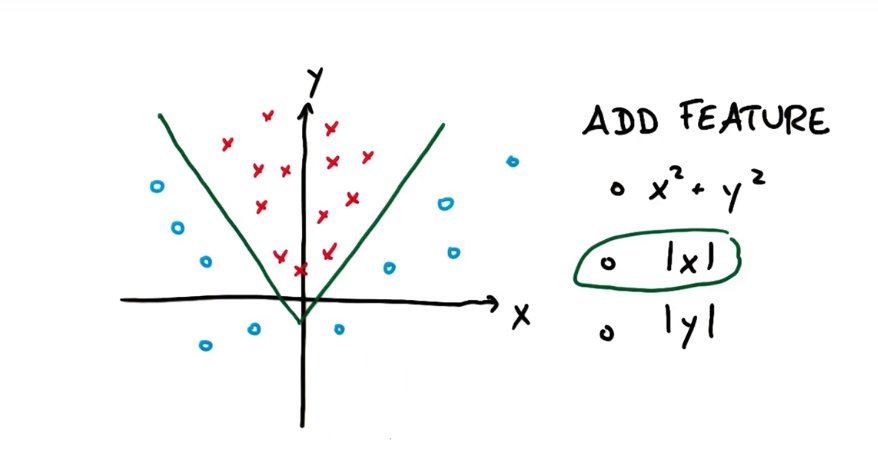 Y
X
ADD FEATURE
x² + y²
|x|
|y|